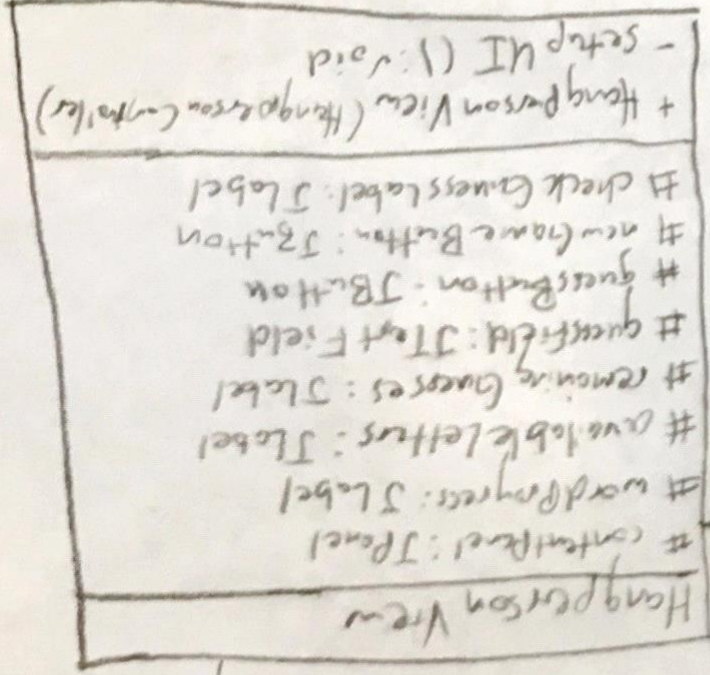 Hangperson View
# contentPanel: JPanel
# wordProgress: JLabel
# availableLetters: JLabel
# remainingGuesses: JLabel
# guessField: JTextField
# guessButton: JButton
# newGameButton: JButton
# checkGuessLabel: JLabel
+ HangPersonView (HangpersonController)
- setup UI (): void